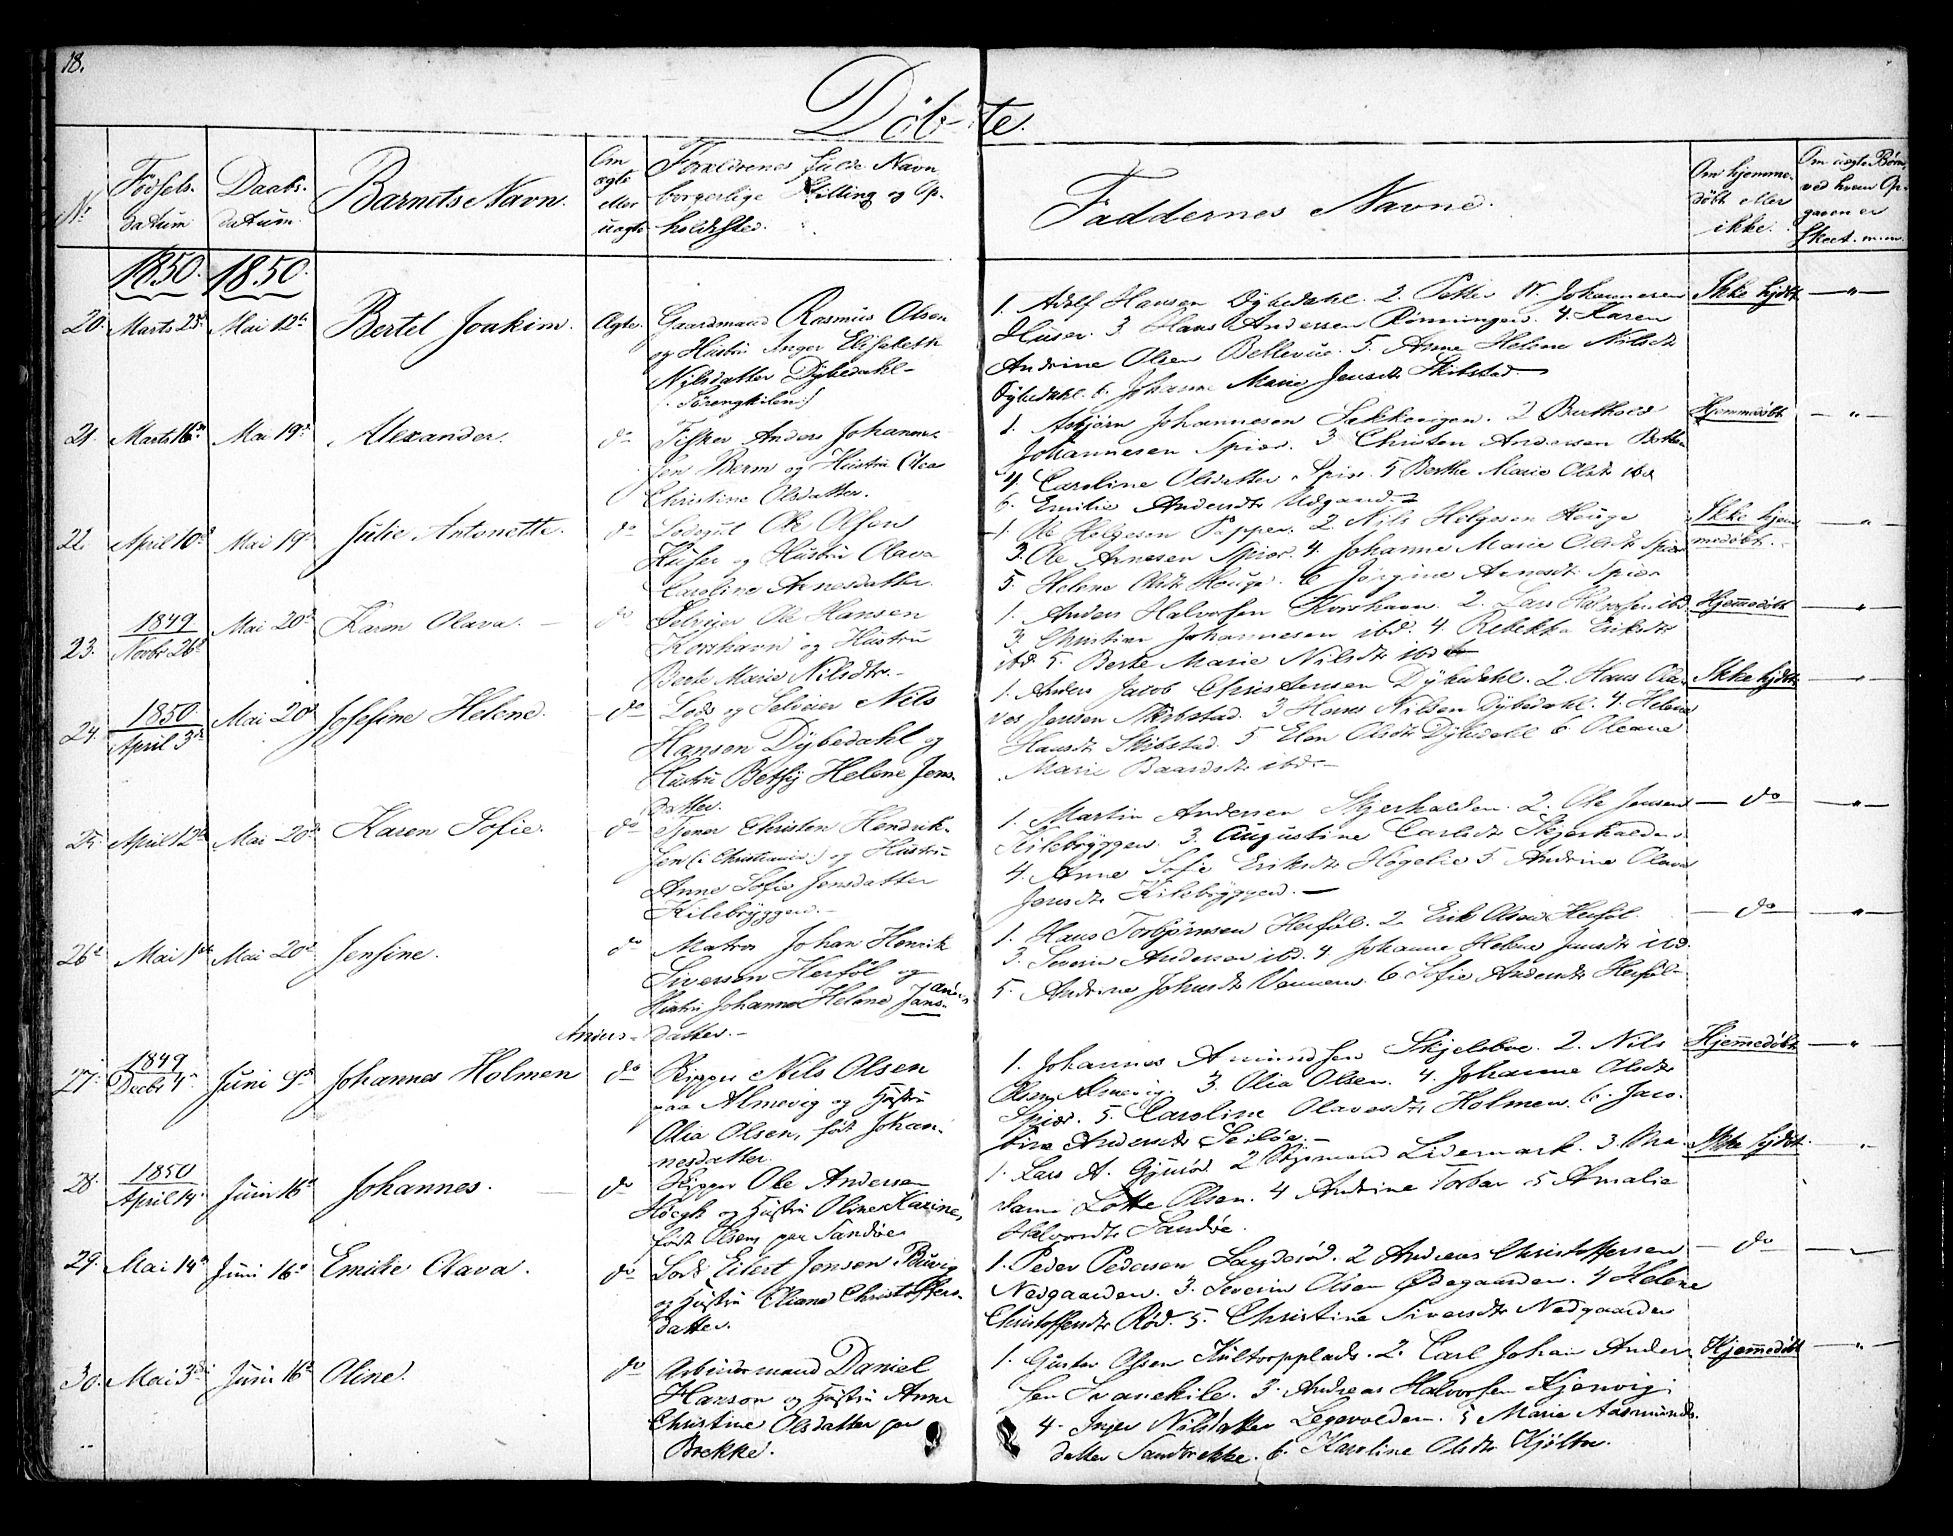 18.
Døbte.
No
Fødsels-
datum
Daabs-
datum.
Barnets Navn.
Om
ægte
eller
uægte
Forældrenes fulde Navn
borgerlige Stilling og Op-
holdssted.
Faddernes Navne.
Om hjemme-
døbt eller
ikke.
Om uægte Børn,
ved hvem Op-
gaven er
skeet. m.m.
1850. 1850.
20. Marts 25 Mai 12 Bertel Joakim. Ægte.
Gaardmand Rasmus Olsen
og Hustru Inger Elisabeth
Nilsdatter Dÿbedahl -
1. Adolf Hansen Dÿbedahl. 2. Petter W. Johannesen
Huser. 3 Hans Andersen Rønningen. 4. Karen
Andrine Olsen Bellevue. 5. Anne Helene Nilsdtr
Dÿbedahl. 6. Johanne Marie Jensdtr Skibstad.
Ikke hjdøbt - " -
21. Marts 16 Mai 19 Alexander. do
Fisker Anders Johanne-
sen og Hustru Olea
Christine Olsdatter.
1. Asbjørn Johannesen 2 Berthold
Johannesen Spior. 3 Christen Andersen
4. Caroline Olsdatter Spior. 5 Berthe Marie Olsdtr ibd
6. Emilie Andersdtr
Hjemmedøbt - " -
22. April 10 Mai 19 Julie Antonette. do
Ole Olsen
Huser og Hustru Olava
Caroline Arnesdatter.
1. Ole Helgesen Papper. 2 Nils Helgesen Houge
3. Ole Arnesen Spior. 4. Johanne Marie Olsdtr Spior
5. Helene Olsdtr Houge. 6 Jørgine Arnesdtr Spior
Ikke hjem-
medøbt. "
1849
23. Novbr 26 Mai 20 Karen Olava. do
Selveier Ole Hansen
Korshavn og Hustru
Berte Marie Nilsdtr. -
1. Anders Halvorsen Korshavn. 2. Lars Halvorsen ibd.
3. Christian Johannesen ibd. 4. Rebekka Eriksdtr
ibd. 5. Berte Marie Nilsdtr ibd
Hjemmedøbt - " -
1850
24. April 3 Mai 20 Josefine Helene. do
Lods og Selveier Nils
Hansen Dÿbedahl og
Hustru Betsÿ Helene Jens-
datter.
1. Anders Jacob Christensen Dÿbedahl. 2. Hans Cla-
ves Jensen Skibstad. 3 Hans Nilsen Dÿbedahl. 4. Helene
Hansdtr Skibstad. 5 Elen Olsdtr Dÿbedahl 6. Oleane
Marie Baardsdtr ibd. -
Ikke hjdøbt - " -
25. April 12 Mai 20 Karen Sofie. do
Tjener Christen Hendrik-
sen (i Christiania) og Hustru
Anne Sofie Jensdatter
Kilebrÿggen. -
1. Martin Andersen Skjerhalden. 2. Ole Jensen
Kilebrÿggen. 3. Augustine Carlsdtr Skjerhalden.
4. Anne Sofie Eriksdtr Høgelie 5 Andrine Olava
Jensdtr Kilebrÿggen. -
- do - - " -
26 Mai 1 Mai 20 Jensine. do
Matros Johan Henrik
Siversen Herføl og
Hustru Johanne Helene Jans-
Anders- datter. -
1. Hans Torbjørnsen Herføl. 2. Erik Olsen Herføl.
3. Severin Andersen ibd. 4 Johanne Helene Jensdtr ibd.
5. Andrine Johnsdtr 6 Sofie Andersdtr Herføl -
- do - - " -
1849
27. Decbr 4 Juni 9 Johannes Holmen do
Skipper Nils Olsen
paa Almevig og Hustru
Olia Olsen, født Johan-
nesdatter.
1. Johannes Amundsen Skjelsboe. 2. Nils
Olsen Almevig. 3. Olia Olsen. 4. Johanne Olsdtr
Spior. 5. Caroline Olavesdtr Holmen. 6. Jaco-
bine Andersdtr Seiløe. -
Hjemmedøbt - " -
1850
28. April 14 Juni 16 Johannes. do
Skipper Ole Andersen
Høegh og Hustru Oline Karine,
født Olsen, paa Sandøe
1. Lars A. Gjurød 2 Lidemark. 3.
Lotte Olsen. 4 Andrine Torbar 5 Amalie
Halvorsdtr Sandøe.
Ikke hjdøbt. "
29. Mai 14 Juni 16 Emilie Olava. do
Lods Eilert Jensen Buvig
og Hustru Eliane Christoffers-
datter.
1. Peder Pedersen 2 Andreas Christoffersen
Nedgaarden. 3. Severin Olsen Ødegaarden. 4 Helene
Christoffersdtr Rød. 5. Christine Siversdtr Nedgaarden
- do -
30. Mai 3 Juni 16 Oline. do
Arbeidermand Daniel
Hansen og Hustru Anne
Christine Olsdatter paa
Brekke.
1. Gustav Olsen 2. Carl Johan Ander-
sen Svanekile. 3. Andreas Halvorsen Kjenvig
4. Inger Nilsdatter Legevolden. 5 Marie Aasmunds-
datter Sandbrekke. 6. Karoline Olsdtr Kjølbo.
Hjemmedøbt - " -